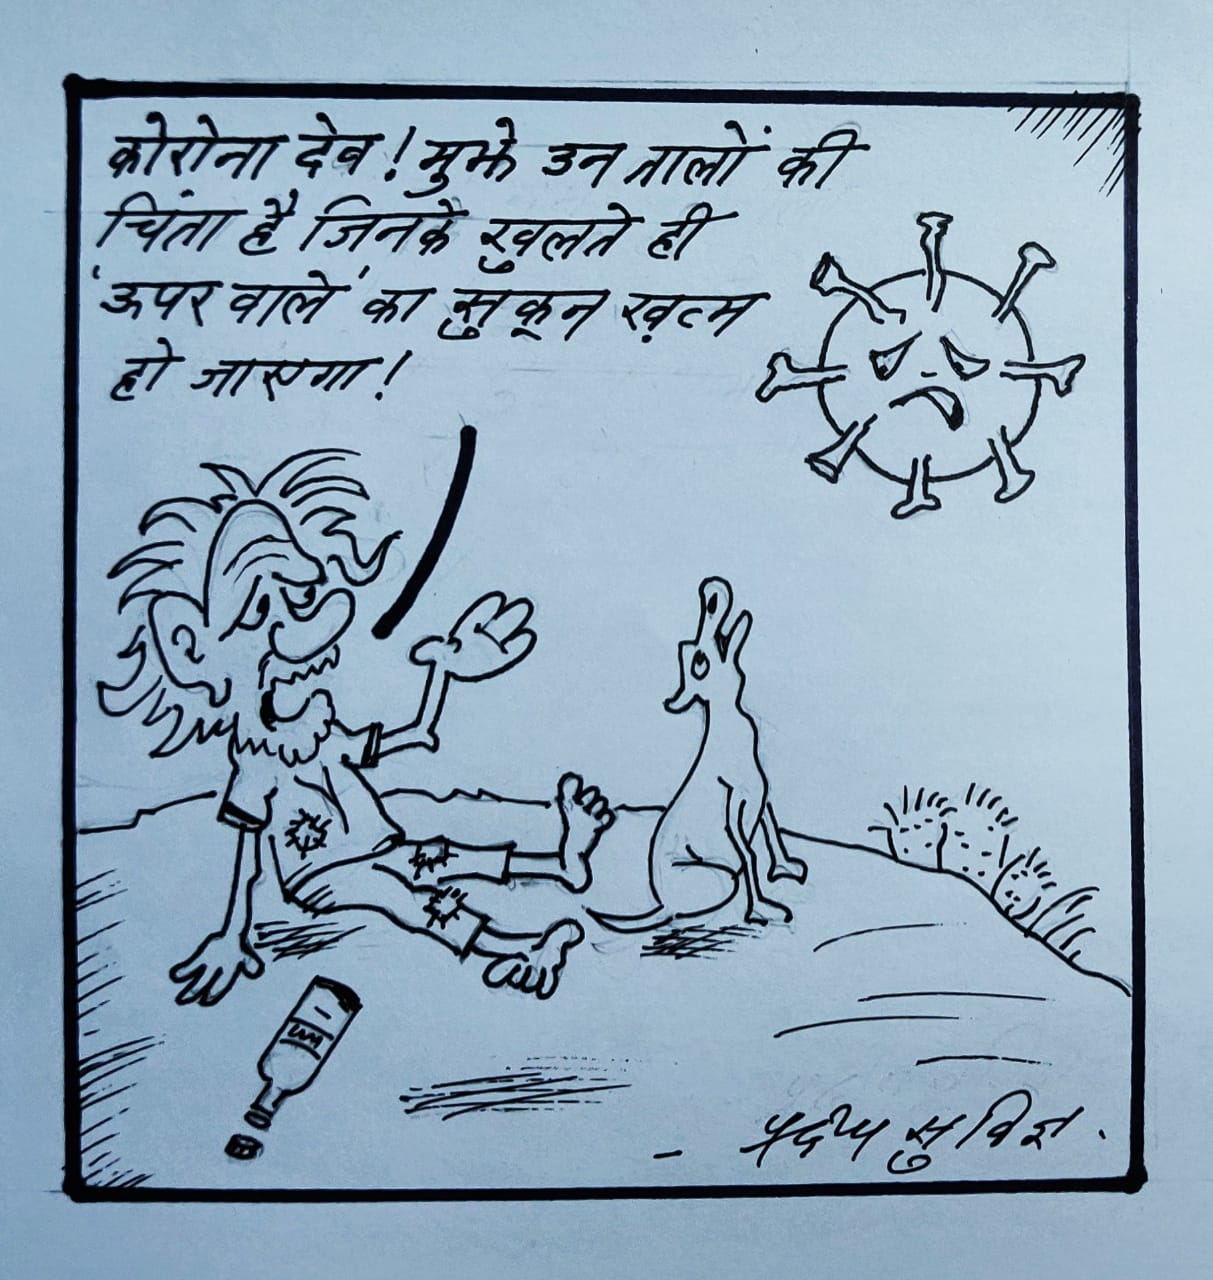 कोरोना देव! मुझे उन तालों की
चिंता है जिनके खुलते ही
'ऊपर वाले' का सुकून ख़त्म
हो जाएगा!
सुविज्ञ